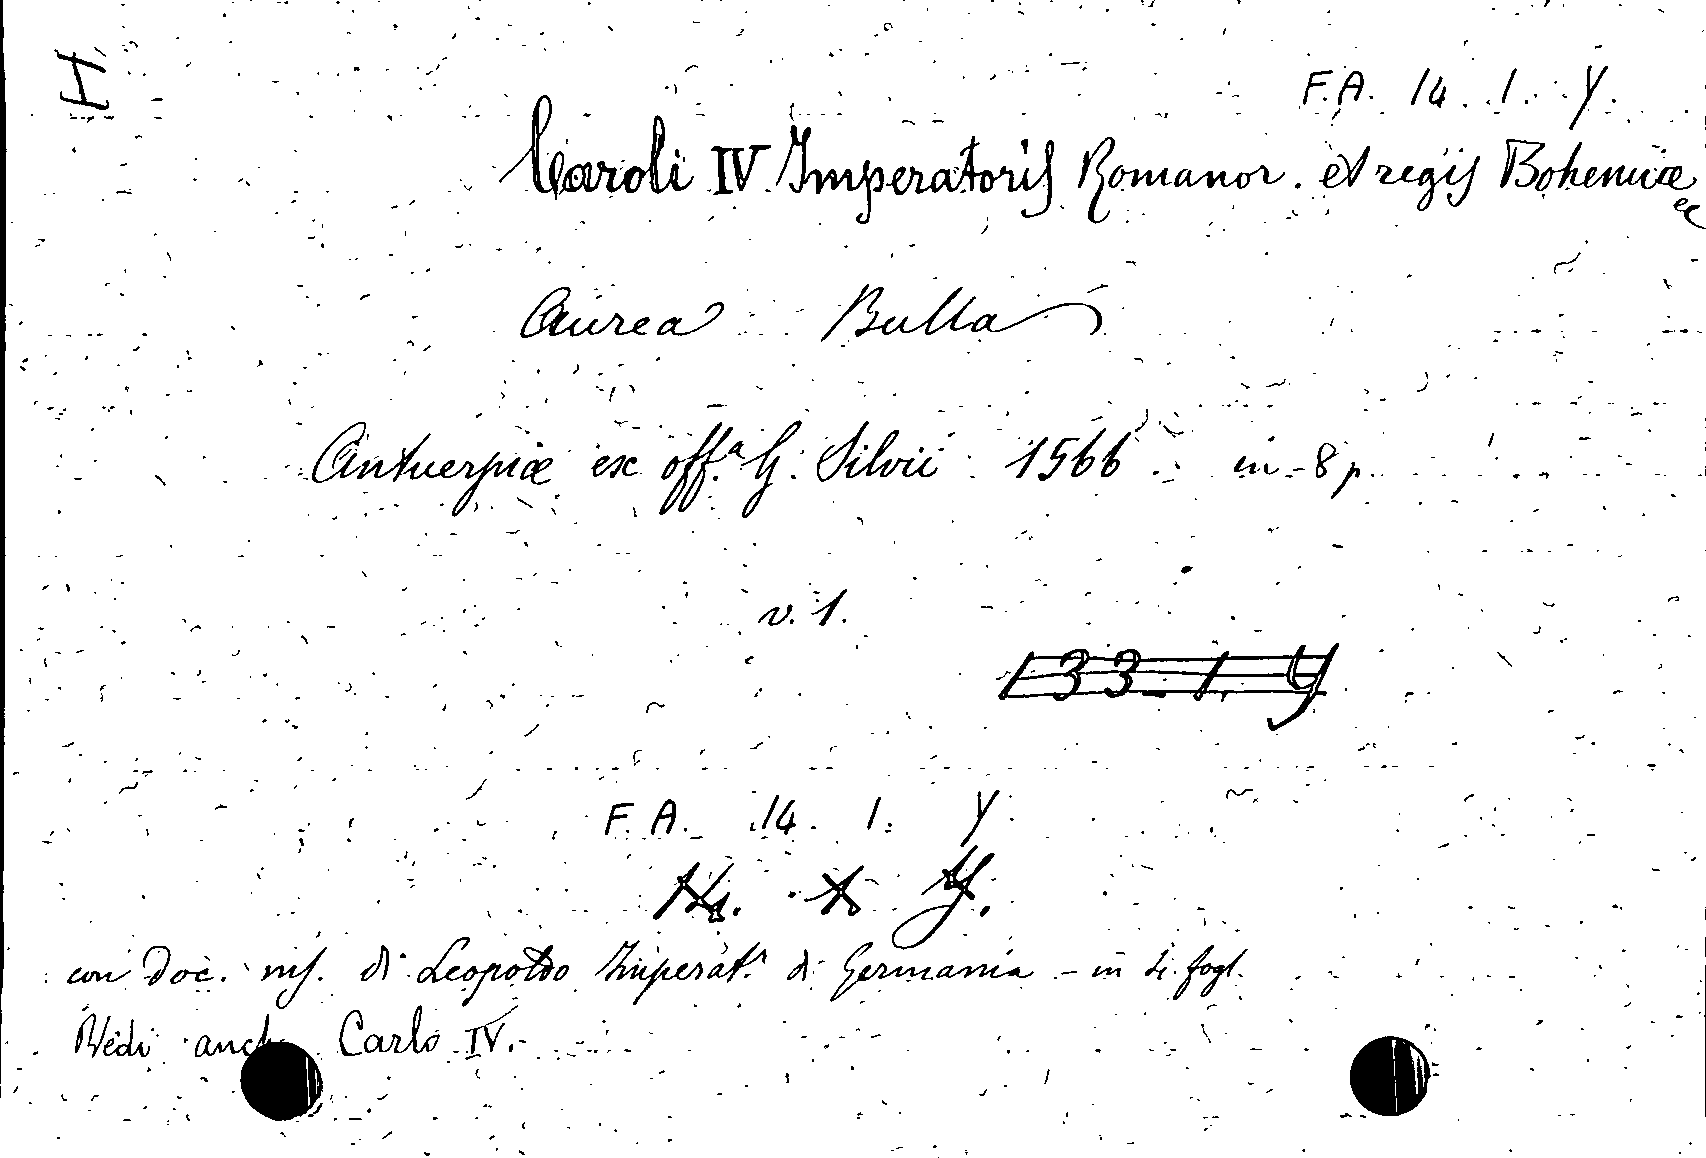 H
F.A. 14. 1. Y.
Caroli IV Imperatoris Romanor. et regis Bohemiæ
Aurea Bulla
Antuerpiæ ex off.a G. Silvii 1566. in-8 p.
v. 1.
133-1. Y
F.A. 14. 1. Y.
14. 1 Y.
con doc. ms. di Leopoldo Imperat.e di Germania - in 4. fogl.
Vedi anche Carlo IV.